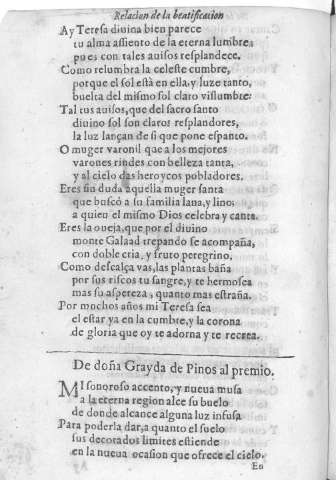 Relacion de la beatificacion
Ay Teresa diuina bien parece
tu alma assiento de la eterna lumbre,
pues con tales auisos resplandece.
Como relumbra la celeste cumbre,
porque el sol està en ella, y luze tanto,
buelta del mismo sol claro vislumbre.
Tal tus auisos, que del sacro santo
diuino sol son claros resplandores,
la luz lançan de si que pone espanto.
O muger varonil que a los mejores
varones rindes con belleza tanta,
y al cielo das heroycos pobladores.
Eres sin duda aquella muger santa
que buscò a su familia lana, y lino:
a quien el mismo Dios celebra y canta.
Eres la oueja, que por el diuino
monte Galaad trepando se acompaña,
con doble cria, y fruto peregrino.
Como descalça vas, las plantas baña
por sus riscos tu sangre, y te hermosea
mas su aspereza, quanto mas estraña.
Por muchos años mi Teresa sea
el estar ya en la cumbre, y la corona
de gloria que oy te adorna y te recrea.
De doña Grayda de Pinos al premio.
MI sonoroso accento, y nueua musa
a la eterna region alce su buelo
de donde alcance alguna luz infusa
Para poderla dar, a quanto el suelo
sus decorados limites estiende
en la nueua ocasion que ofrece el cielo.
En